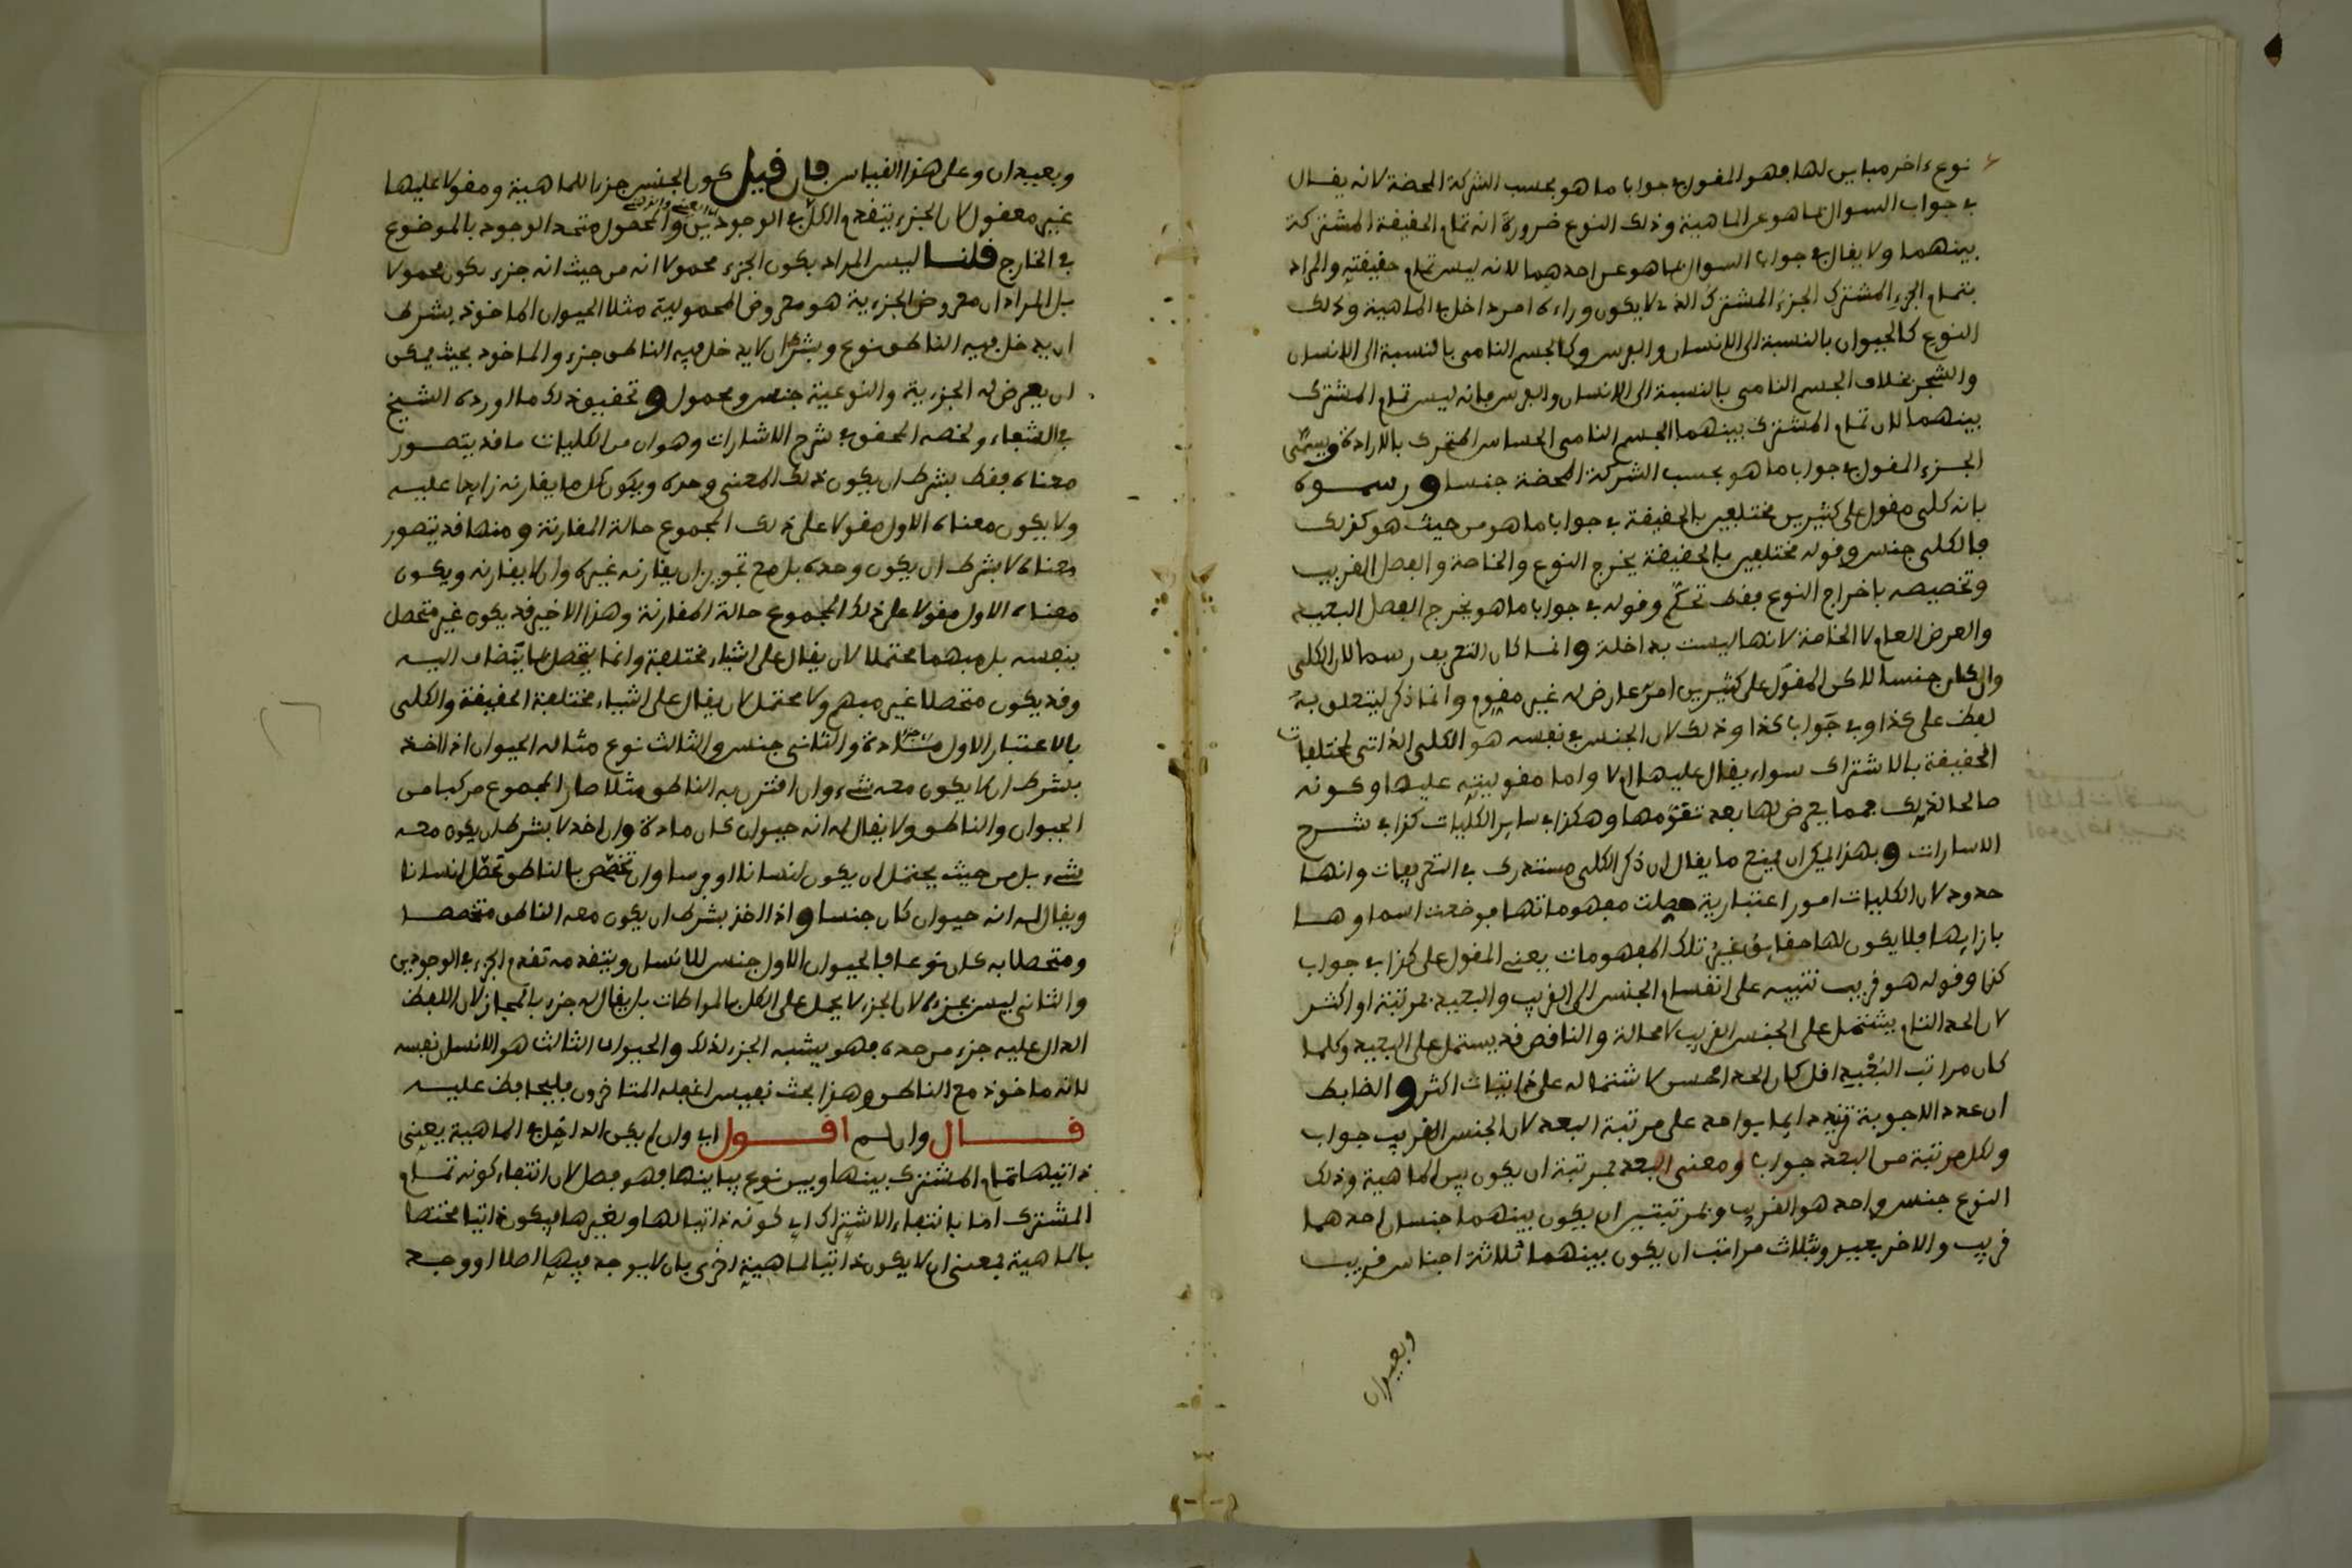 نوع ءاخر مباين لها فهو المقول في جواب ما هو بحسب الشركة المحضة لانه يقال
في جواب السوال بما هو عن الماهية وذلك النوع ضرورة انه تمام الحقيقة المشتركة
بينهما ولا يقال في جواب السوال بما هو عن احدهما لانه ليس تمام حقيقته والمراد
بتمام الجزء المشترك الجزء المشترك الذي لا يكون وراءه امر داخل في الماهية وذلك
النوع كالحيوان بالنسبة الى الانسان والفرس وكالجسم النامى بالنسبة الى الانسان
والشجر بخلاف الجسم النامى بالنسبة الى الانسان والفرس فانه ليس تمام المشترك
بينهما لان تمام المشترك بينهما الجسم النامى الحساس المتحرك بالارادة ويسمى
الجزء المقول في جواب ما هو بحسب الشركة المحضة جنسا ورسموه
بانه كلى مقول على كثيرين مختلفين بالحقيقة في جواب ما هو من حيث هو كذلك
فالكلى جنس وقوله مختلفين بالحقيقة يخرج النوع والخاصة والفصل القريب
وتخصيصه باخراج النوع فقط تحكم وقوله في جواب ما هو يخرج الفصل البعيد
والعرض العام لا الخاصة لانها ليست بداخلة وانما كان التعريف رسما لان الكلى
وان كان جنسا لاكن المقول على كثيرين امر عارض له غير مقوم وانما ذكر ليتعلق به
لفظ على كذا وفي جواب كذا وذلك لان الجنس في نفسه هو الكلى الذاتى لمختلفات
الحقيقة بالاشتراك سواء يقال عليها ام لا واما مقوليته عليها وكونه
صالحا لذلك فمما يعرض لها بعد تقومها وهكذا في ساير الكليات كذا في شرح
الاسارات وبهذا يمكن ان يمنع ما يقال ان ذكر الكلى مستدرك في التعريفات وانها
حدود لان الكليات امور اعتبارية حصلت مفهوماتها فوضعت اسماوها
بازايها فلا يكون لها حقايق غير تلك المفهومات يعنى المقول على كذا في جواب
كذا وقوله هو قريب تنبيه على انقسام الجنس الى القريب والبعيد بمرتبة او اكثر
لان الحد التام يشتمل على الجنس القريب لا محالة والناقص قد يستمل على البعيد وكلما
كان مراتب البعيد اقل كان الحد احسن لاشتماله على ذاتيات اكثر والضابط
ان عدد الاجوبة تزيد دايما بواحد على مرتبة البعد لان الجنس القريب جواب
ولكل مرتبة من البعد جواب ومعنى البعد بمرتبة ان يكون بين الماهية وذلك
النوع جنس واحد هو القريب وبمرتبتين ان يكون بينهما جنسان احدهما
قريب والاخر بعيد وبثلاث مراتب ان يكون بينهما ثلاثة اجناس قريب
وبعيدان
وبعيدان وعلى هذا القياس فان قيل كون الجنس جزءا للماهية ومقولا عليها
غير معقول لان الجزء يتقدم الكل في الوجودين والمحمول متحد الوجود بالموضوع
في الخارج قلنا ليس المراد بكون الجزء محمولا انه من حيث انه جزء يكون محمولا
بل المراد ان معروض الجزءية هو معروض المحمولية مثلا الحيوان الماخوذ بشرط
ان يدخل فيه الناطق نوع وبشرط ان لا يدخل فيه الناطق جزء والماخوذ بحيث يمكن
ان يعرض له الجزءية والنوعية جنس ومحمول وتحقيق ذلك ما اورده الشيخ
في الشفاء ولخصه المحقق في شرح الاشارات وهو ان من الكليات ما قد يتصور
معناه فقط بشرط ان يكون ذلك المعنى وحده ويكون كل ما يقارنه زايدا عليه
ولا يكون معناه الاول مقولا على ذلك المجموع حالة المقارنة ومنها قد يتصور
معناه لا بشرط ان يكون وحده بل مع تجويز ان يقارنه غيره وان لا يقارنه ويكون
معناه الاول مقولا على ذلك المجموع حالة المقارنة وهذا الاخير قد يكون غير متحصل
بنفسه بل مبهما محتملا لان يقال على اشياء مختلفة وانما يتحصل بما يتضاف اليه
وقد يكون متحصلا غير مبهم ولا محتمل لان يقال على اشياء مختلفة الحقيقة والكلى
بالاعتبار الاول مادة والثانى جنس والثالث نوع مثاله الحيوان اذا اخذ
بشرط ان لا يكون معه شيء وان اقترن به الناطق مثلا صار المجموع مركبا من
الحيوان والناطق ولا يقال له انه حيوان كان مادة وان اخذ لا بشرط ان يكون معه
شيء بل من حيث يحتمل ان يكون انسانا او فرسا وان تخصص بالناطق تحصل انسانا
ويقال له انه حيوان كان جنسا واذا اخذ بشرط ان يكون معه الناطق متخصصا
ومتحصلا به كان نوعا فالحيوان الاول جنس للانسان ويتقدمه تقدم الجزء في الوجودين
والثانى ليس بجزء لان الجزء لا يحمل على الكل بالمواطات بل يقال له جزء بالمجاز لان اللفظ
الدال عليه جزء من حده فهو يشبه الجزء لذلك والحيوان الثالث هو الانسان نفسه
لانه ماخوذ مع الناطق وهذا بحث نفيس اغفله المتاخرون فليحافظ عليه
قال وان لم اقول اي وان لم يكن الداخل في الماهية يعنى
ذاتيها تمام المشترك بينها وبين نوع يباينها فهو فصل لان انتفاء كونه تمام
المشترك اما بانتفاء الاشتراك اي كونه ذاتيا لها ولغيرها فيكون ذاتيا مختصا
بالماهية بمعنى ان لا يكون ذاتيا لماهية اخرى بان لا يوجد فيها اصلا او وجد